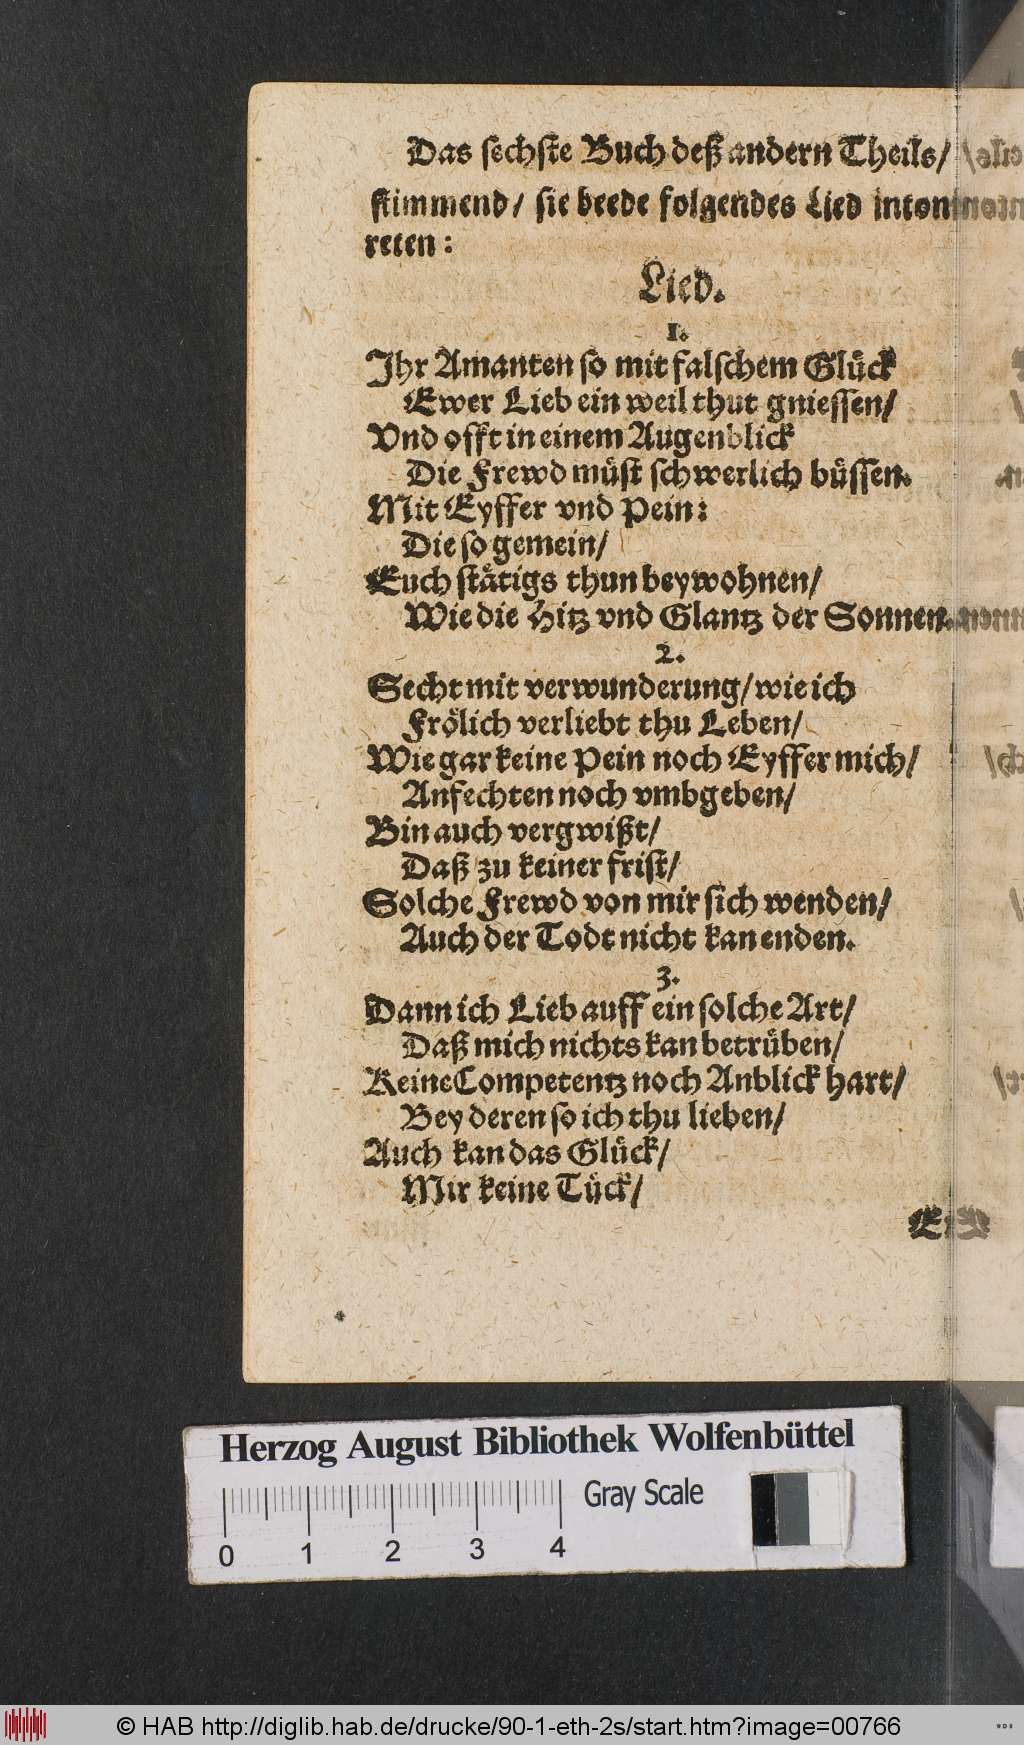 Das sechste Buch deß andern Theils/
stimmend/ sie beede folgendes Lied intoni-
reten:
Lied.
1.
Ihr Amanten so mit falschem Glück
Ewer Lieb ein weil thut gniessen/
Vnd offt in einem Augenblick
Die Frewd müst schwerlich büssen.
Mit Eyffer vnd Pein:
Die so gemein/
Euch stätigs thun beywohnen/
Wie die Hitz vnd Glantz der Sonnen.
2.
Secht mit verwunderung/ wie ich
Frölich verliebt thu Leben/
Wie gar keine Pein noch Eyffer mich/
Anfechten noch vmbgeben/
Bin auch vergwißt/
Daß zu keiner frist/
Solche Frewd von mir sich wenden/
Auch der Todt nicht kan enden.
3.
Dann ich Lieb auff ein solche Art/
Daß mich nichts kan betrüben/
Keine Competentz noch Anblick hart/
Bey deren so ich thu lieben/
Auch kan das Glück/
Mir keine Tück/
Herzog August Bibliothek Wolfenbüttel
Gray Scale
0 1 2 3 4
© HAB http://diglib.hab.de/drucke/90-1-eth-2s/start.htm?image=00766